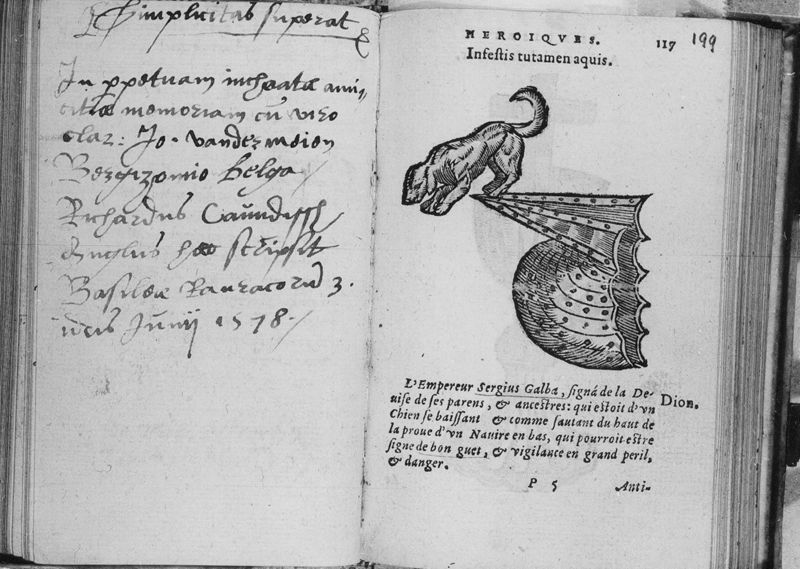 Simplicitas superat
In ppetuam inchoatæ ami„
citiæ memoriam cū viro
clar: Jo. vandermeien
Bergizomio belga
Richardus Caundissh
Anglus hæc scripsit
Basileæ Rauracorū 3.
idus Junij 1578.
HEROIQVES. 117 199
Infestis tutamen aquis.
L'Empereur Sergius Galba, signá de la De-
uise de ses parens, & ancestres: qui estoit d'vn Dion.
Chien se baissant & comme sautant du haut de
la proue d'vn Nauire en bas, qui pourroit estre
signe de bon guet, & vigilance en grand peril,
& danger.
P 5 Anti-